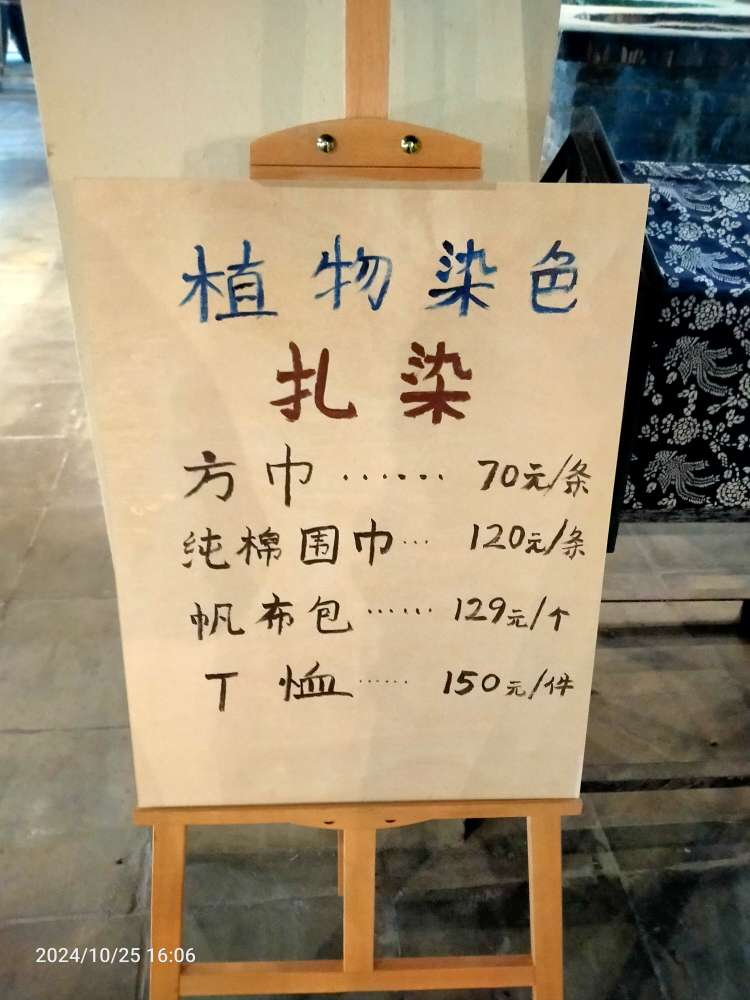 植物染色
扎染
方巾······· 70元/条
纯棉围巾··· 120元/条
帆布包······ 129元/个
T恤······ 150元/件
2024/10/25 16:06